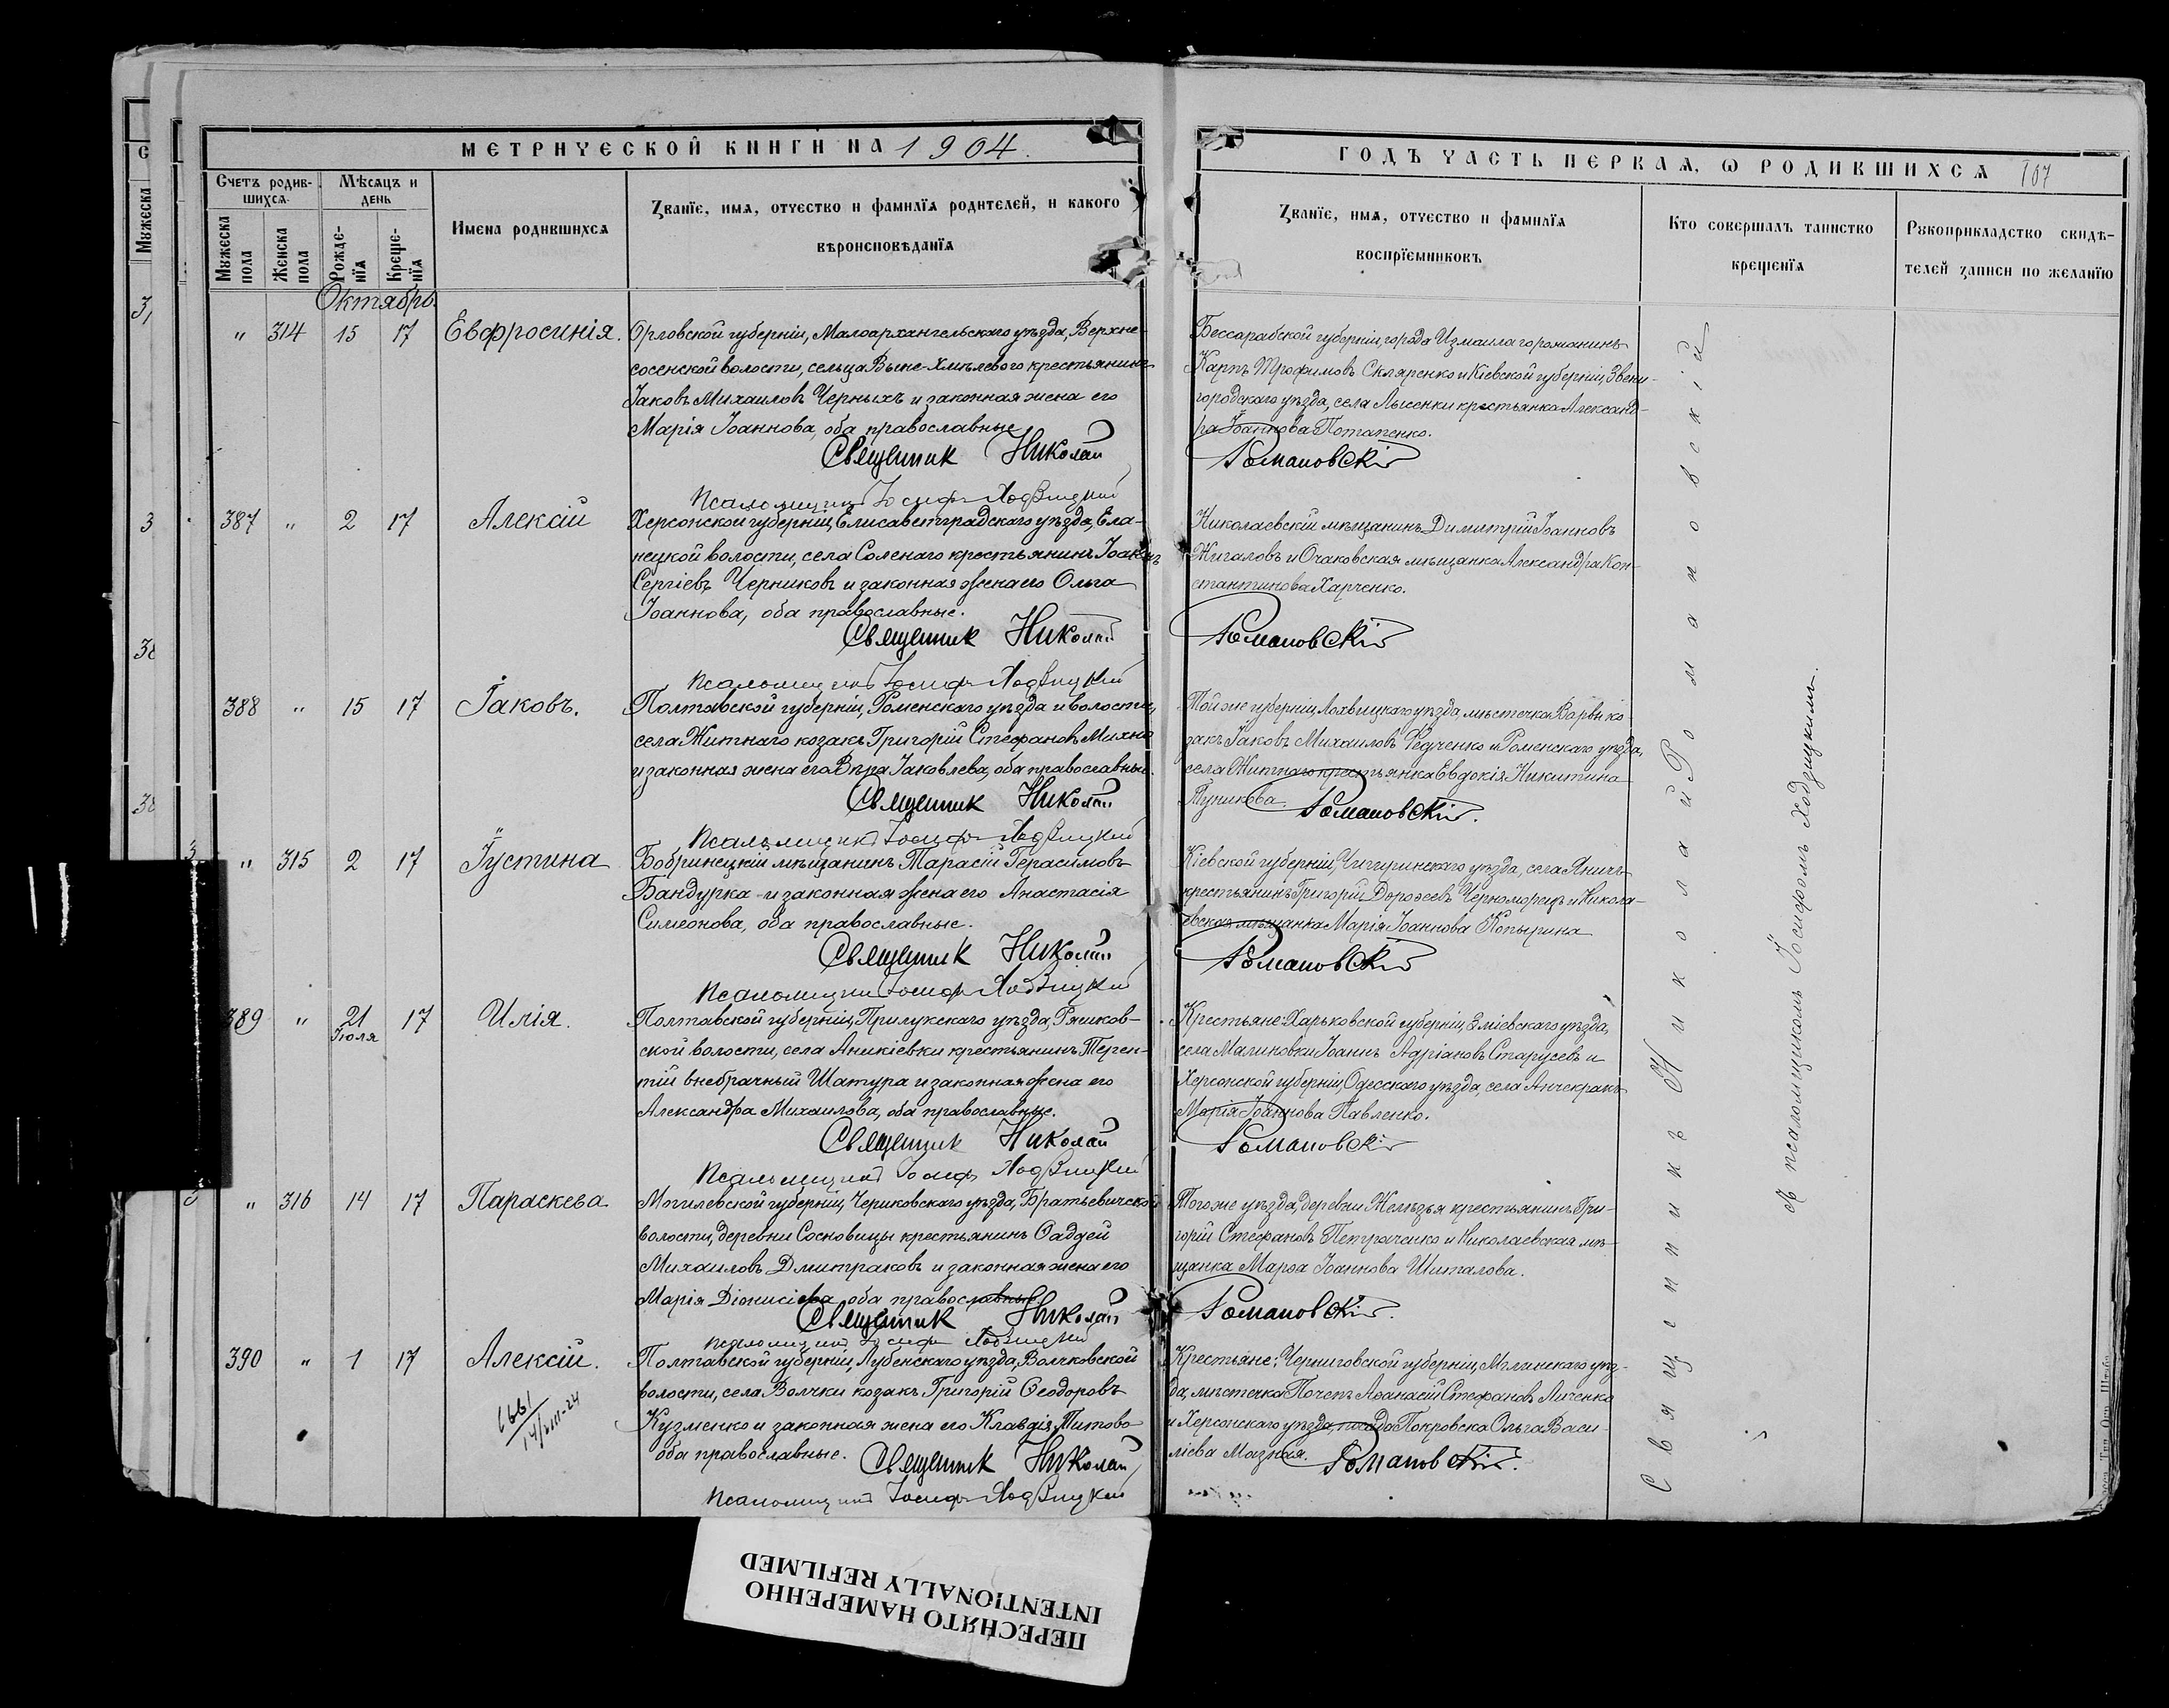 МЕТРИЧЕСКОЙ КНИГИ НА 1904.
Счетъ родив-
шихся.
Мѣсяцъ и
день
Мужеска
пола
Женска
пола
Рожде-
нїя
Креще-
нїя
Имена родившихся
Званїе, имя, отчество и фамилїя родителей, и какого
вѣроисповѣданїя
Октябрь
" 314 15 17 Евфросинія. Орловской губерніи, Малоархангельскаго уѣзда, Верхне-
сосенской волости, сельца Выше-Хмѣлевого крестьянинъ
Іаковъ Михаиловъ Черныхъ и законная жена его
Марія Іоаннова, оба православные
Священник Николай
Псаломщикъ Іосифъ Ходзицкий
387 " 2 17 Алексій Херсонской губерніи, Елисаветградскаго уѣзда, Ела-
нецкой волости, села Соленаго крестьянинъ Іоаннъ
Сергіевъ Черниковъ и законная жена его Ольга
Іоаннова, оба православные.
Священник Николай
Псаломщикъ Іосифъ Ходзицкий
388 " 15 17 Іаковъ. Полтавской губерніи, Роменскаго уѣзда и волости,
села Житнаго козакъ Григорій Стефановъ Михно
и законная жена его Вѣра Іаковлева, оба православные.
Священник Николай
Псаломщикъ Іосифъ Ходзицкий
" 315 2 17 Іустина Бобринецкій мѣщанинъ Тарасій Герасимовъ
Бандурка и законная жена его Анастасія
Симеонова, оба православные.
Священник Николай
Псаломщикъ Іосифъ Ходзицкий
389 " 21 17 Илія. Полтавской губерніи, Прилукскаго уѣзда, Ряшков-
Іюля
ской волости, села Аникіевки крестьянинъ Терен-
тій внебрачный Шатура и законная жена его
Александра Михаилова, оба православные.
Священник Николай
Псаломщикъ Іосифъ Ходзицкий
" 316 14 17 Параскева Могилевской губерніи, Чериковскаго уѣзда, Братьевичской
волости, деревни Сосновицы крестьянинъ Ѳаддей
Михаиловъ Дмитраковъ и законная жена его
Марія Діонисіева, оба православные
Священник Николай
Псаломщикъ Іосифъ Ходзицкий
390 " 1 17 Алексій. Полтавской губерніи, Лубенскаго уѣзда, Волчковской
волости, села Волчки козакъ Григорій Ѳеодоровъ
Кузменко и законная жена его Клавдія Титова
оба православные. Священник Николай
Псаломщикъ Іосифъ Ходзицкий
ГОДЪ ЧАСТЬ ПЕРВАЯ, Ѡ РОДИВШИХСЯ 107
Званїе, имя, отчество и фамилїя
воспрїемниковъ
Кто совершалъ таинство
крещенїя
Рукоприкладство свидѣ-
телей записи по желанію
Бессарабской губерніи, города Измаила горожанинъ
Карпъ Трофимовъ Скляренко и Кіевской губерніи, Звени-
городскаго уѣзда, села Лысенки крестьянка Александ-
ра Іоаннова Потапенко.
Романовскій
Николаевскій мѣщанинъ Димитрій Іоанновъ
Жигаловъ и Очаковская мѣщанка Александра Кон-
стантинова Харченко.
Романовскій
Той же губерніи, Лохвицкаго уѣзда, мѣстечка Варвы ко-
закъ Іаковъ Михаиловъ Федченко и Роменскаго уѣзда,
села Житнаго крестьянка Евдокія Никитина
Туникова. Романовскій.
Кіевской губерніи, Чигиринскаго уѣзда, села Яничъ
крестьянинъ Григорій Дороѳеевъ Черноморецъ и Никола-
евская мѣщанка Марія Іоаннова Копырина
Романовскій
Крестьяне: Харьковской губерніи, Зміевскаго уѣзда,
села Малиновки Іоаннъ Адріановъ Старусевъ и
Херсонской губерніи, Одесскаго уѣзда, села Анчекракъ
Марія Іоаннова Павленко.
Романовскій
Того же уѣзда, деревни Желѣзья крестьянинъ Гри-
горій Стефановъ Петраченко и Николаевская мѣ-
щанка Марѳа Іоаннова Шиталова.
Романовскій.
Крестьяне: Черниговской губерніи, Мглинскаго уѣз-
да, мѣстечка Почепъ Аѳанасій Стефановъ Личенко
и Херсонскаго уѣзда, посада Покровска Ольга Васи-
ліева Мазная. Романовскій.
Священникъ Николай Романовскій
съ псаломщикомъ Іосифомъ Ходзицкимъ.
ПЕРЕСНЯТО НАМЕРЕННО
INTENTIONALLY REFILMED